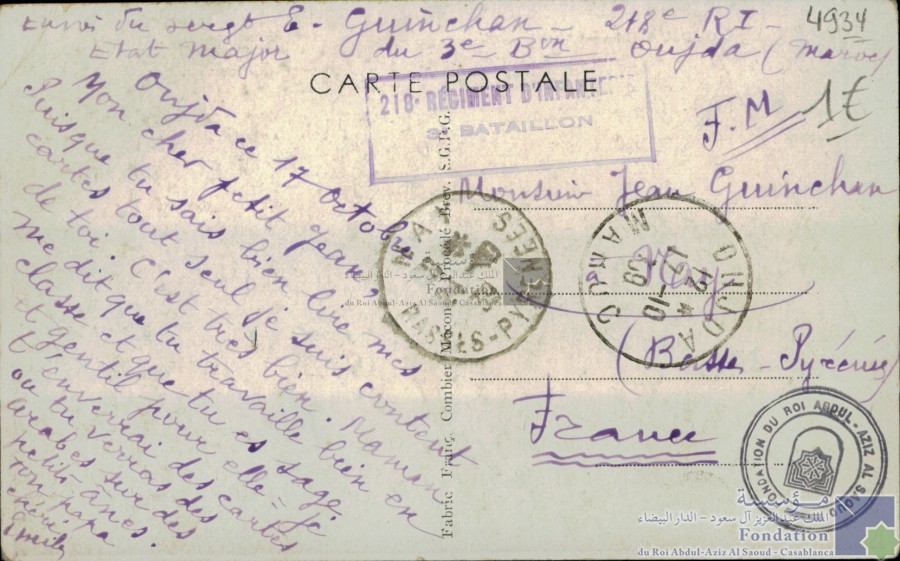 Envoi du sergt E. Guinchan - 218e RI -
Etat Major du 3e Bon Oujda (Maroc)
4934
1€
CARTE POSTALE
218e RÉGIMENT D'INFANTERIE
3e BATAILLON
F.M
Oujda ce 17 octobre
Mon cher petit Jean,
Puisque tu sais bien lire mes
cartes tout seul, je suis content
de toi. C'est très bien. Maman
me dit que tu travaille bien en
classe et que tu es sage
et gentil pour elle. Je
t'enverrai des cartes
ou tu verras des
arabes sur des
petits ânes.
Ton papa
chéri.
Emile
Monsieur Jean Guinchan
Nay
(Basses-Pyrénées)
France
NAY
BASSES-PYRENEES
OUJDA
MAROC
12 *
17-10
39
Fabric. Franç. Combier Macon Procédé Brev. S.G.D.G.
مؤسسة
الملك عبد العزيز آل سعود - الدار البيضاء
Fondation
du Roi Abdul-Aziz Al Saoud - Casablanca
FONDATION DU ROI ABDUL-AZIZ AL SAOUD
مؤسسة
الملك عبد العزيز آل سعود - الدار البيضاء
Fondation
du Roi Abdul-Aziz Al Saoud - Casablanca